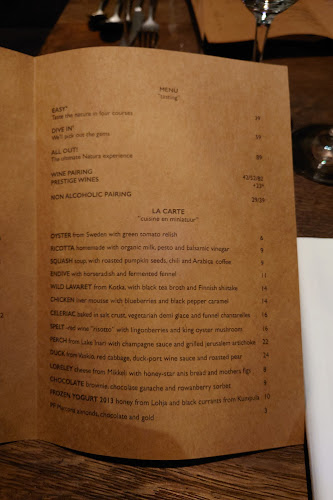 MENU
"tasting"
EASY"
Taste the nature in four courses 39
DIVE IN"
We'll pick out the gems 59
ALL OUT!
The ultimate Natura experience 89
WINE PAIRING 43/52/82
PRESTIGE WINES
NON ALCOHOLIC PAIRING 29/39
LA CARTE
"cuisine en miniature"
OYSTER from Sweden with green tomato relish 6
RICOTTA homemade with organic milk, pesto and balsamic vinegar 8
SQUASH soup, with roasted pumpkin seeds, chili and Arabica coffee 9
ENDIVE with horseradish and fermented fennel 11
WILD LAVARET from Kotka, with black tea broth and Finnish shiitake 14
CHICKEN liver mousse with blueberries and black pepper caramel 14
CELERIAC, baked in salt crust, vegetarian demi glace and funnel chanterelles 16
SPELT -red wine "risotto" with lingonberries and king oyster mushroom 16
PERCH from Lake Inari with champagne sauce and grilled Jerusalem artichoke 22
DUCK from Kokkola, red cabbage, duck-port wine sauce and roasted pear 24
LOBELEY cheese from Mikkeli with honey-star anis bread and mothers figs 8
CHOCOLATE brownie, chocolate ganache and rowanberry sorbet 9
FROZEN YOGURT 2013 honey from Lohja and black currants from Kuhala 10
almonds, chocolate and gold 3